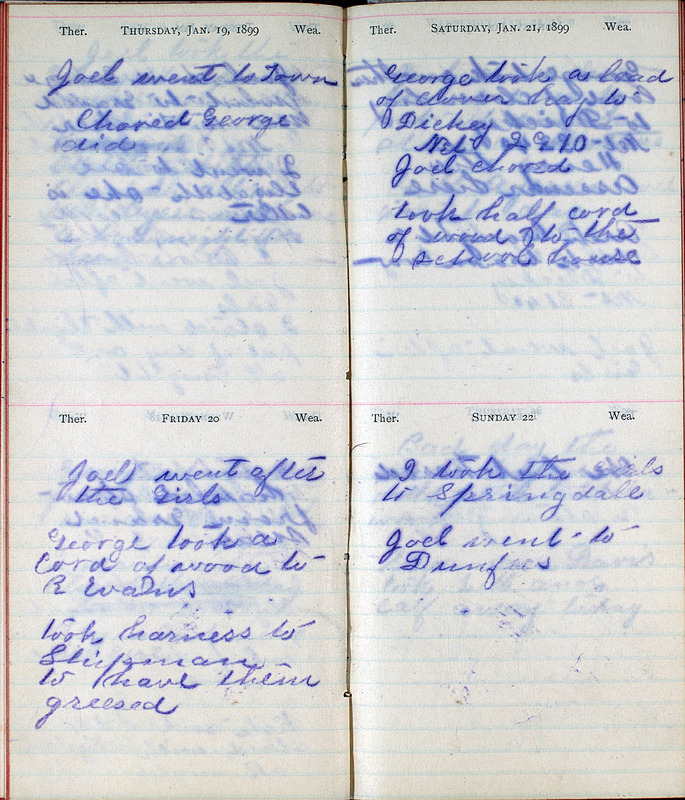 Ther. THURSDAY, JAN. 19, 1899 Wea.
Joel went to Town
Chored George
did
Ther. FRIDAY 20 Wea.
Joel went after
the Girls
George took a
Cord of wood to
R Evans
took harness to
Shipman
to have them
greesed
Ther. SATURDAY, JAN. 21, 1899 Wea.
George took a load
of clover hay to
Dickey
Net 2210
Joel chored
took half cord
of wood to the
School house
Ther. SUNDAY 22 Wea.
I took the Girls
to Springdale
Joel went to